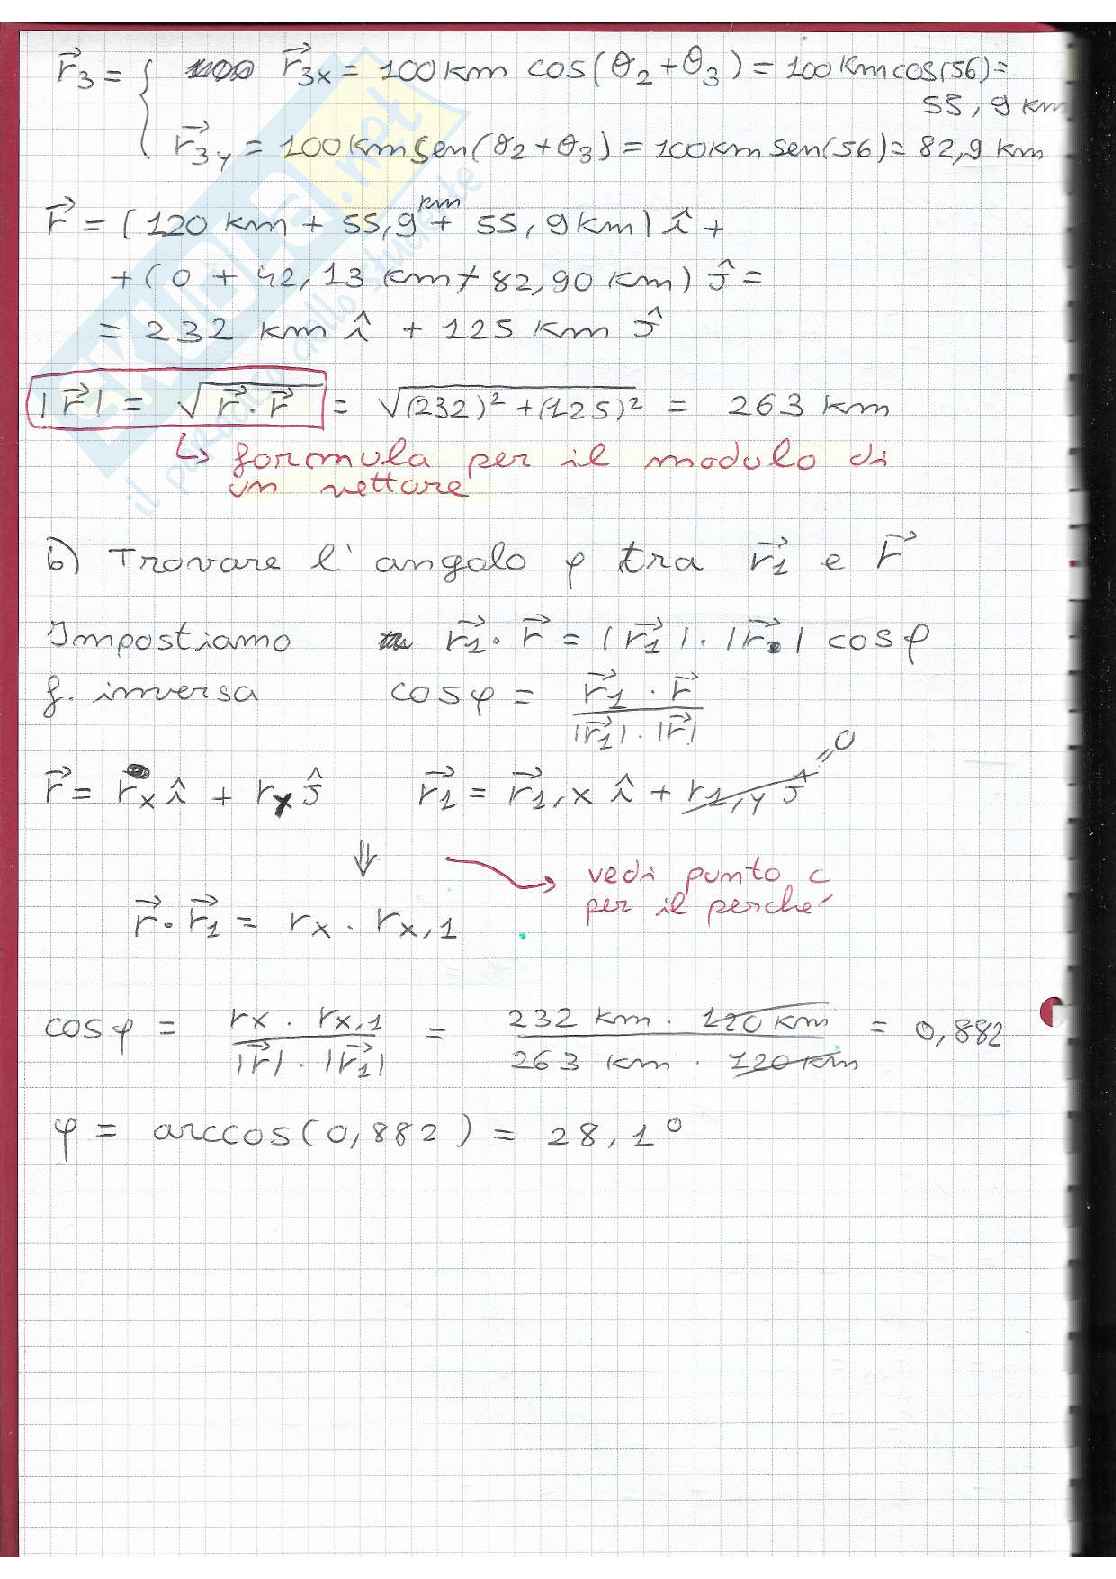 r⃗3 = { r⃗3x = 100 km cos(θ2+θ3) = 100 km cos(56) =
55,9 km
r⃗3y = 100 km sen(θ2+θ3) = 100 km sen(56) = 82,9 km
r⃗ = (120 km + 55,9 km + 55,9 km) î +
+ (0 + 42,13 km + 82,90 km) ĵ =
= 232 km î + 125 km ĵ
|r⃗| = √r⃗·r⃗ = √(232)² + (125)² = 263 km
↳ formula per il modulo di
un vettore
b) Trovare l'angolo φ tra r⃗1 e r⃗
Impostiamo r⃗1 · r⃗ = |r⃗1| · |r⃗| cosφ
f. inversa cosφ = r⃗1 · r⃗ / |r⃗1| · |r⃗|
r⃗ = rx î + ry ĵ r⃗1 = r⃗1,x î + r1,y ĵ = 0
⇓
vedi punto c
per il perché
r⃗ · r⃗1 = rx · rx,1
cosφ = rx · rx,1 / |r⃗| · |r⃗1| = 232 km · 120 km / 263 km · 120 km = 0,882
φ = arccos(0,882) = 28,1°
SKUOLA.net
il portale dello studente